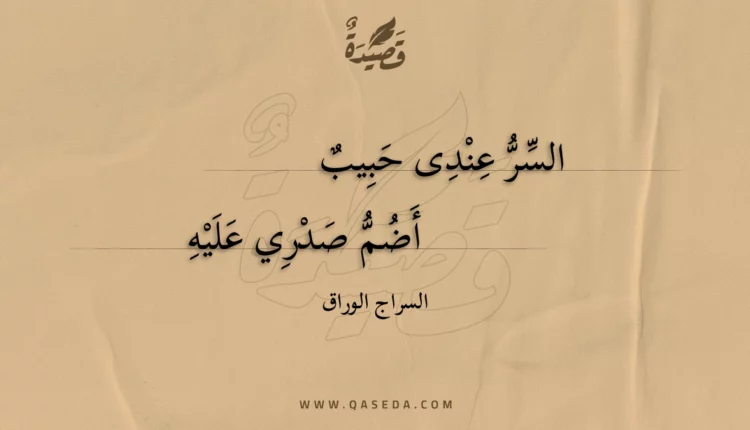 قَصِيدَةٌ
السِّرُّ عِنْدِى حَبِيبٌ
أَضُمُّ صَدْرِي عَلَيْهِ
السراج الوراق
WWW.QASEDA.COM